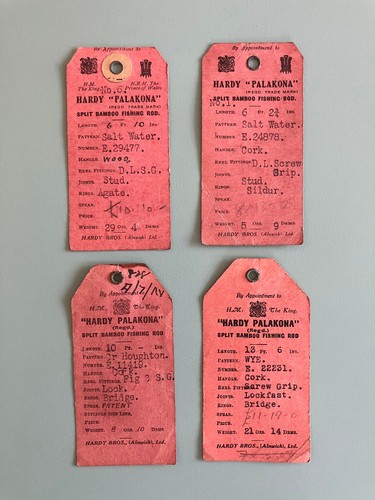 By Appointment to
H.M. The King. H.R.H. The Prince of Wales
No.6.
HARDY "PALAKONA"
(REGD. TRADE MARK)
SPLIT BAMBOO FISHING ROD.
LENGTH, 6 FT. 10 INS.
PATTERN, Salt Water.
NUMBER, E.29477.
HANDLE, Wood.
REEL FITTINGS, D.L.S.G.
JOINTS, Stud.
RINGS, Agate.
SPEAR,
PRICE,
WEIGHT, 29 OZS. 4 DRMS
HARDY BROS. (Alnwick) Ltd.
By Appointment to
HARDY "PALAKONA"
(REGD TRADE MARK)
No.1.
SPLIT BAMBOO FISHING-ROD.
LENGTH, 6 FT. 2¾ INS.
PATTERN, Salt Water.
NUMBER, E.24878.
HANDLE, Cork.
REEL FITTINGS, D.L.Screw Grip.
JOINTS, Stud.
RINGS, Sildur.
SPEAR,
PRICE,
WEIGHT, 5 OZS. 9 DRMS
HARDY BROS. (Alnwick) Ltd.
By Appointment to
H.M. The King.
"HARDY PALAKONA"
(Regd.)
SPLIT BAMBOO FISHING ROD
LENGTH, 10 FT. INS.
PATTERN, Cr Houghton.
NUMBER, E.11419.
HANDLE, Cork.
REEL FITTINGS, Fig 2 S.G.
JOINTS, Lock.
RINGS, Bridge.
SPEAR, PATENT
PRICE,
WEIGHT, 8 OZS. 10 DMS
HARDY BROS. (Alnwick), Ltd.
By Appointment to
H.M. The King.
"HARDY PALAKONA"
(Regd.)
SPLIT BAMBOO FISHING ROD
LENGTH, 13 FT. 6 INS.
PATTERN, WYE.
NUMBER, E. 22231.
HANDLE, Cork.
REEL FITTINGS, Screw Grip.
JOINTS, Lockfast.
RINGS, Bridge.
SPEAR,
PRICE,
WEIGHT, 21 OZS. 14 DMS.
HARDY BROS. (Alnwick), Ltd.